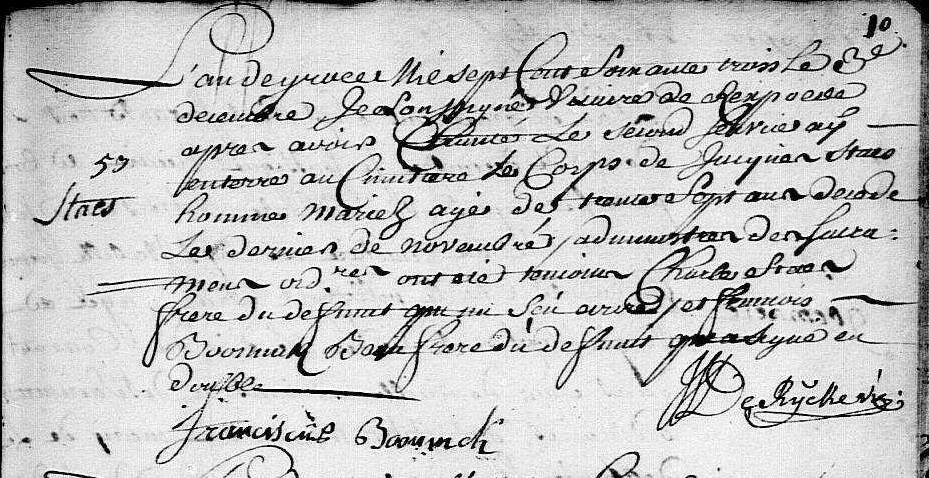 10
L'an de grace Mil sept Cent Soixante trois Le 3e
decembre Je Soussigné Vicaire de Rexpoede
apres avoir Chanté Le Second Service ay
enterré au Cimitiere Le Corps de Jacques Staes
57
Staes
homme Marié agé de trente Sept ans decede
Le dernier de novembre, administré des Sacra=
mens ord.res ont eté temoins Charles Staes
frere du deffunt qui ni Scu ecrire, et francois
Beau frere du deffunt qui a signe en
double
De Rycke vic:
Franciscus